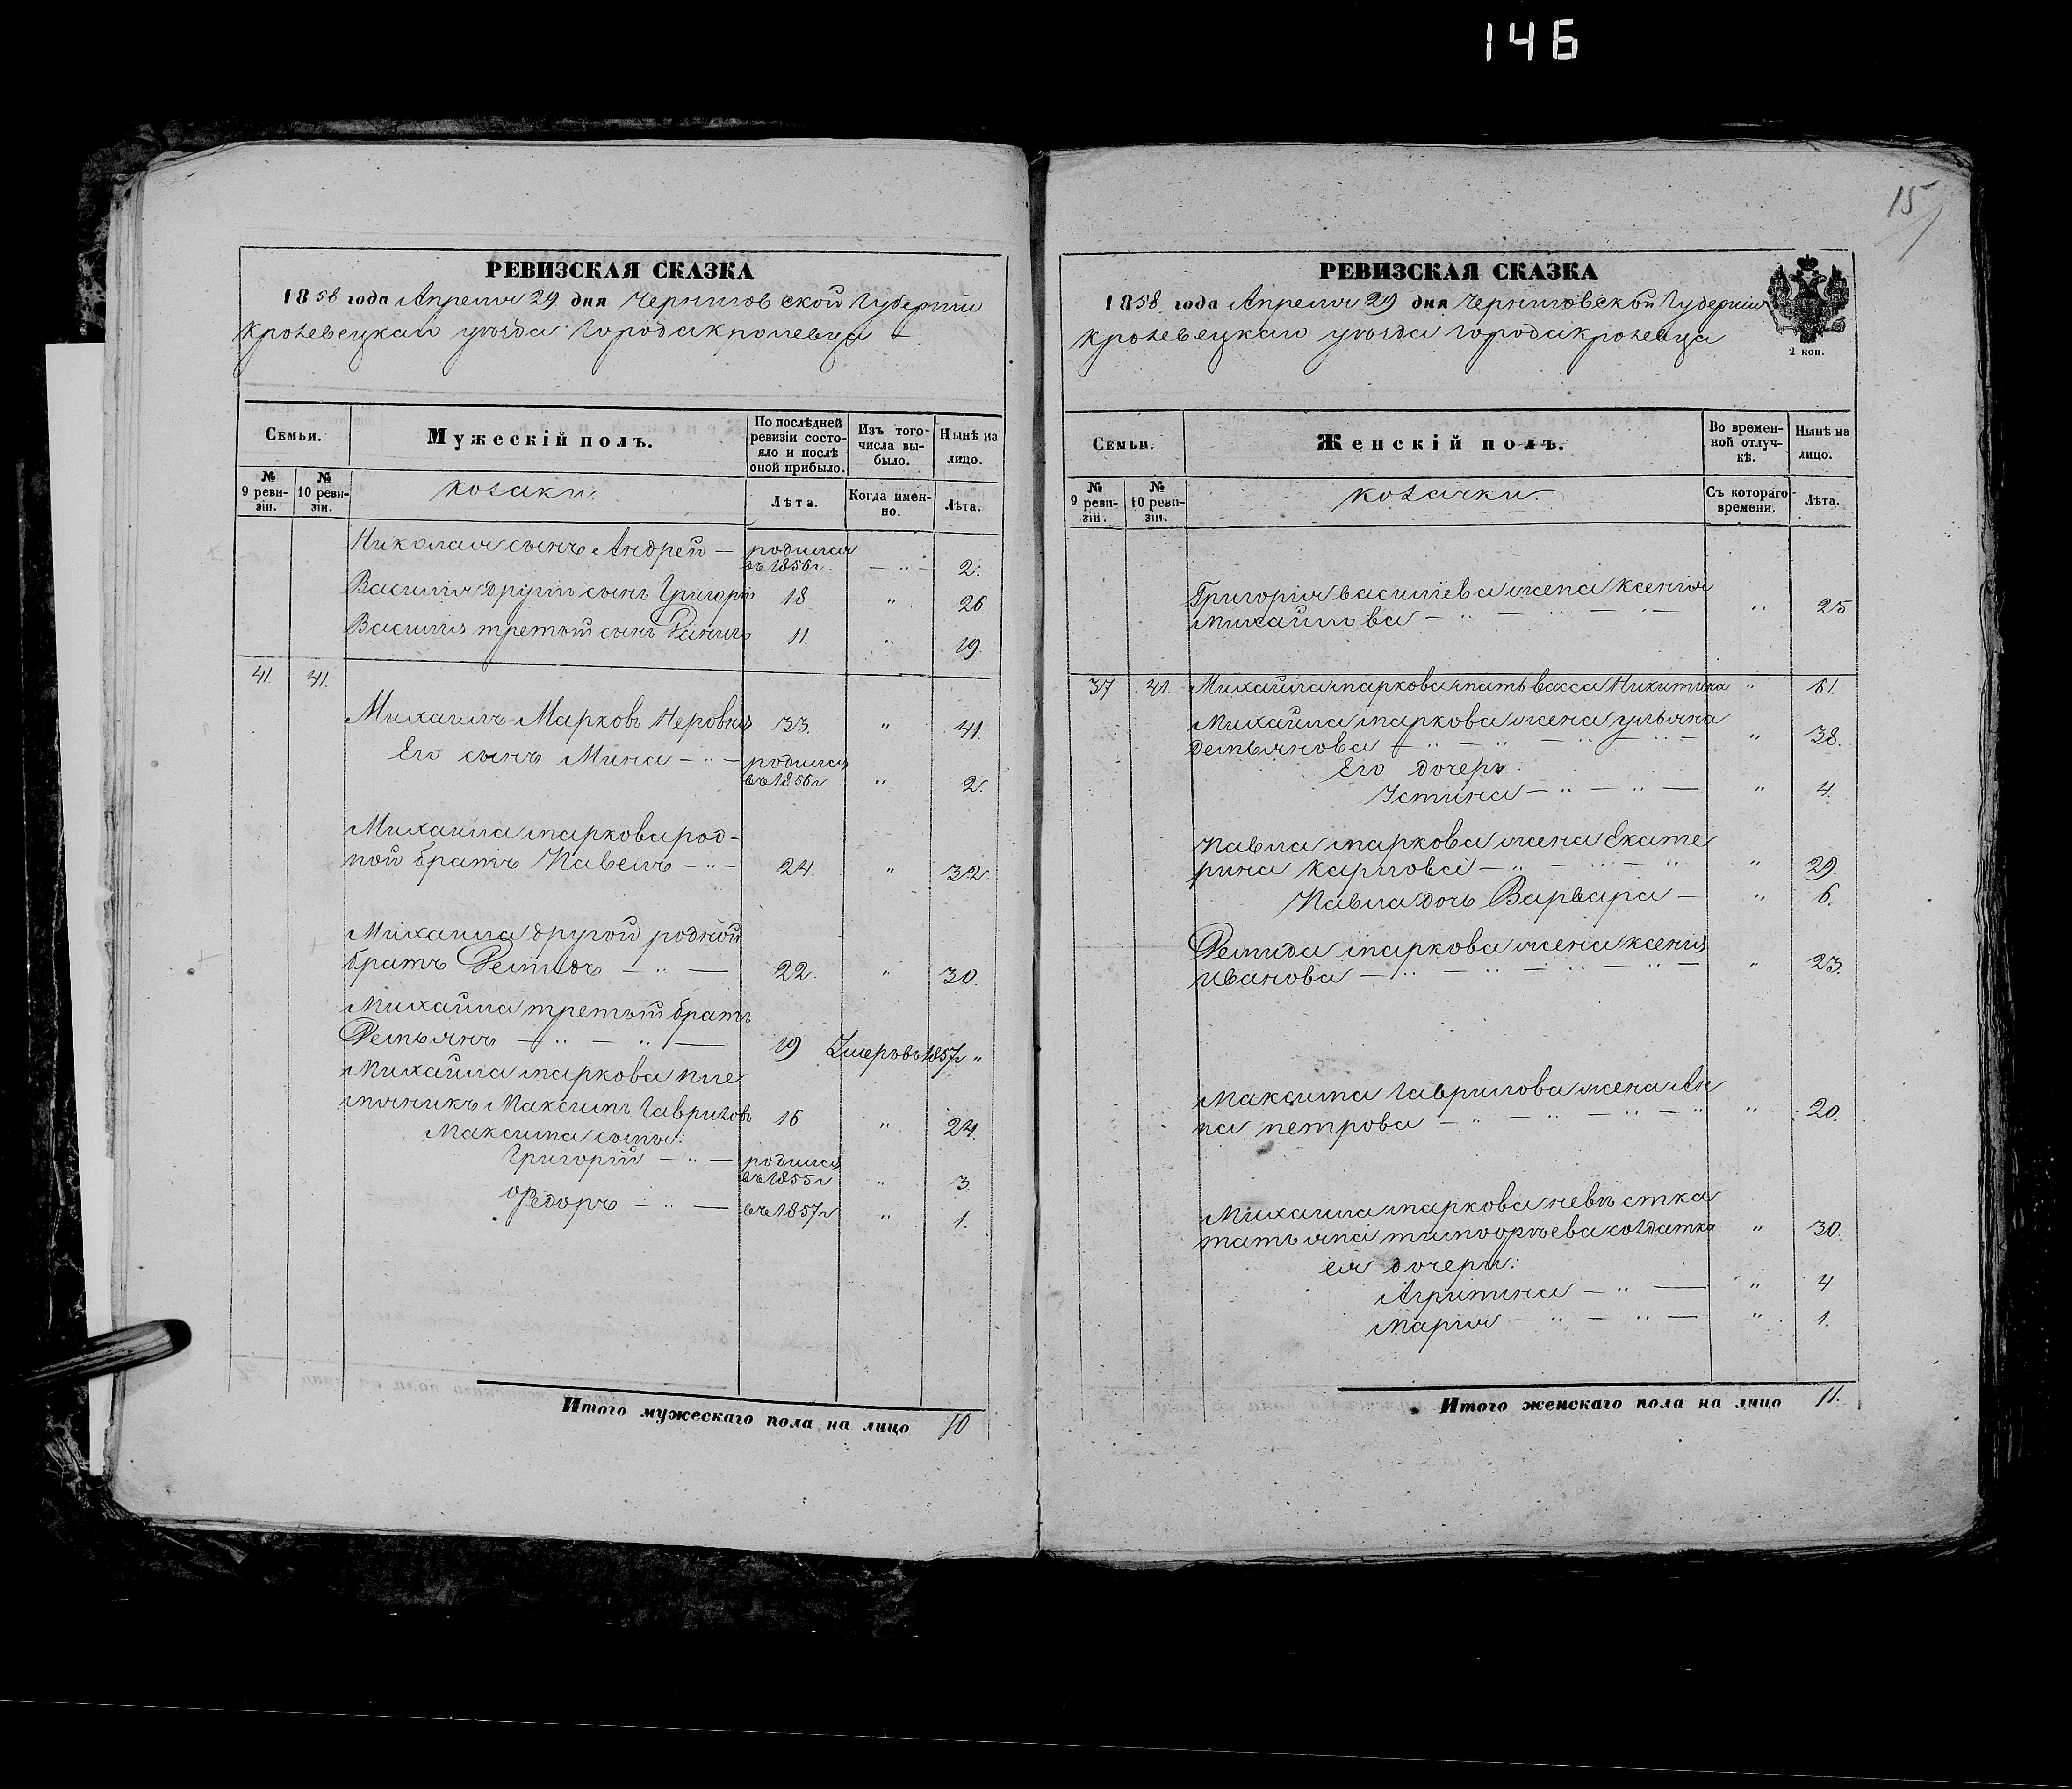 146
РЕВИЗСКАЯ СКАЗКА
1858 года Апреля 29 дня Черниговской Губернии
Кролевецкаго уѣзда города Кролевца
Семьи.
Мужескій полъ.
По послѣдней ревизіи состояло и послѣ оной прибыло.
Изъ того числа выбыло.
Нынѣ на лицо.
№ 9 ревизіи.
№ 10 ревизіи.
козаки
Лѣта.
Когда именно.
Лѣта.
Николая сынъ Андрей — родился въ 1856 г. — " — 2.
Василія другій сынъ Григорій 18 " 26.
Василія третій сынъ Данило 11. " 19.
41. 41.
Михаилъ Марковъ Неровня 33. " 41.
Его сынъ Мина — " — родился въ 1856 г " 2.
Михаила Маркова род-
ной братъ Павелъ — " — 24. " 32.
Михаила другой родной
братъ Демидъ — " — 22. " 30.
Михайла третій братъ
Демьянъ — " — " — 19 Умеръ въ 1857 г "
Михайла Маркова пле
мяникъ Максимъ Гавриловъ 16 " 24.
Максима сыны:
Григорій — " — родился въ 1855 г " 3.
Федоръ — " — въ 1857 г " 1.
Итого мужескаго пола на лицо 10
15
РЕВИЗСКАЯ СКАЗКА
1858 года Апреля 29 дня Черниговской Губерніи
Кролевецкаго уѣзда города Кролевца
2 коп.
Семьи.
Женскій полъ.
Во временной отлучкѣ.
Нынѣ на лицо.
№ 9 ревизіи.
№ 10 ревизіи.
козачки
Съ котораго времени.
Лѣта.
Григорія Васильева жена Ксенія
Михайлова — " — " — " — " 25
37 41. Михайла Маркова мать Васса Никитина " 61.
Михайла Маркова жена Ульяна
Демьянова — " — " — " — " — " 38.
Его дочерь:
Устина — " — " — " 4.
Павла Маркова жена Екате
рина Карпова — " — " — " " 29.
Павла дочь Варвара — " 6.
Демида Маркова жена Ксенія
Иванова — " — " — " — " — " 23.
Максима Гаврилова жена Ан
на Петрова — " — " — " — " " 20.
Михаила Маркова невѣстка
Татьяна Тимофѣева солдатка " 30.
ея дочери:
Агрипина — " — " 4
Марія — " — " — " 1.
Итого женскаго пола на лицо 11.